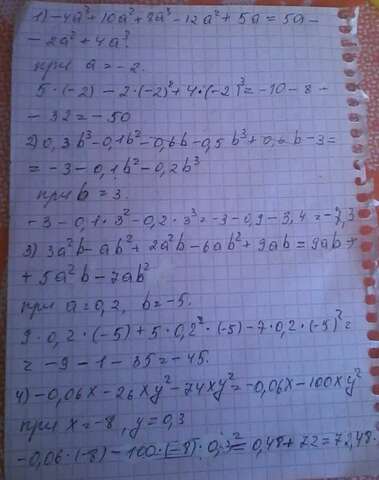 1) -4a³+10a²+8a³-12a²+5a=5a-
-2a²+4a³
при a=-2.
5·(-2)-2·(-2)²+4·(-2)³=-10-8-
-32=-50
2) 0,3b³-0,1b²-0,6b-0,5b³+0,6b-3=
=-3-0,1b²-0,2b³
при b=3.
-3-0,1·3²-0,2·3³=-3-0,9-3,4=-7,3
3) 3a²b-ab²+2a²b-6ab²+9ab=9ab+
+5a²b-7ab²
при a=0,2, b=-5.
9·0,2·(-5)+5·0,2²·(-5)-7·0,2·(-5)²=
=-9-1-35=-45.
4) -0,06x-26xy²-74xy²=-0,06x-100xy²
при x=-8, y=0,3
-0,06·(-8)-100·(-8)·0,3²=0,48+72=72,48.